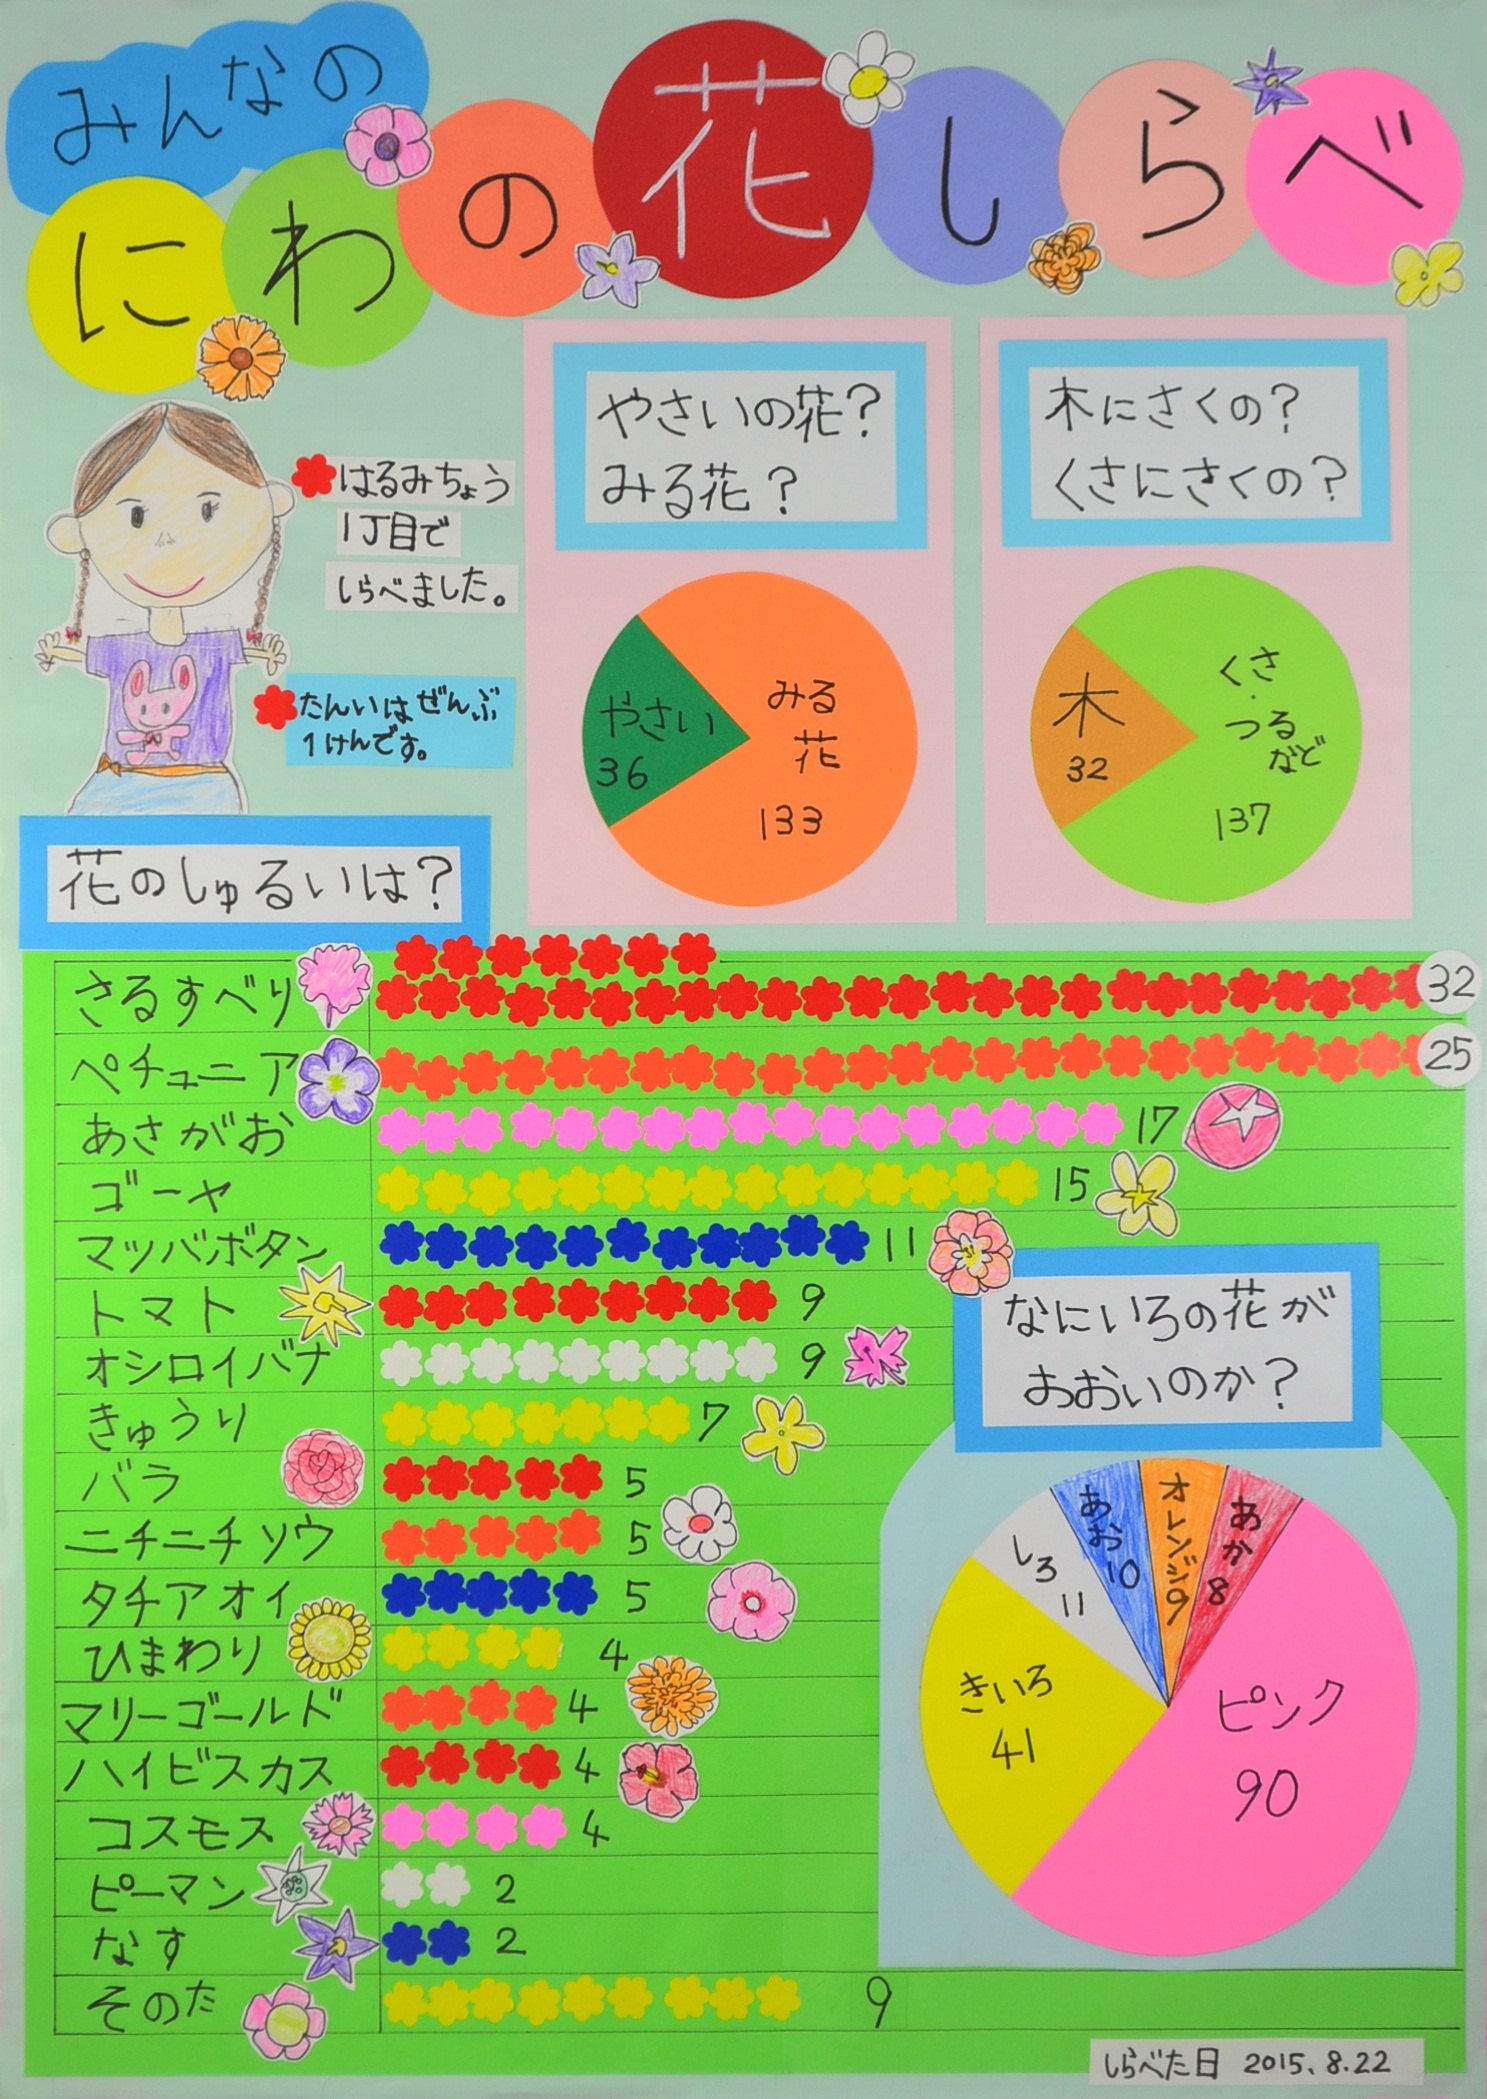 みんなの
にわの花しらべ
はるみちょう
1丁目で
しらべました。
たんいはぜんぶ
1けんです。
やさいの花?
みる花?
やさい
36
みる
花
133
木にさくの?
くさにさくの?
木
32
くさ
・
つる
など
137
花のしゅるいは?
さるすべり 32
ペチュニア 25
あさがお 17
ゴーヤ 15
マツバボタン 11
トマト 9
オシロイバナ 9
きゅうり 7
バラ 5
ニチニチソウ 5
タチアオイ 5
ひまわり 4
マリーゴールド 4
ハイビスカス 4
コスモス 4
ピーマン 2
なす 2
そのた 9
なにいろの花が
おおいのか?
しろ
11
あお10
オレンジ9
あか8
きいろ
41
ピンク
90
しらべた日 2015.8.22